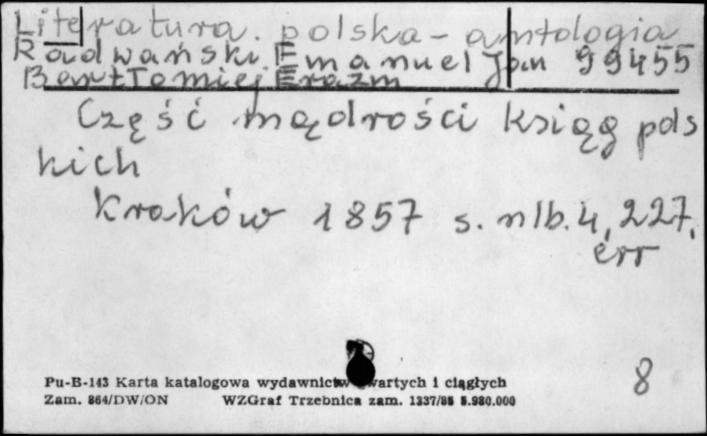 Literatura. polska - antologia
Radwański Emanuel Jan 99455
Bartłomiej Erazm
Część mądrości ksiąg pols
kich
Kraków 1857 s. nlb. 4, 227,
err
8
Pu-B-143 Karta katalogowa wydawnictw zwartych i ciągłych
Zam. 864/DW/ON WZGraf Trzebnica zam. 1337/85 5.980.000